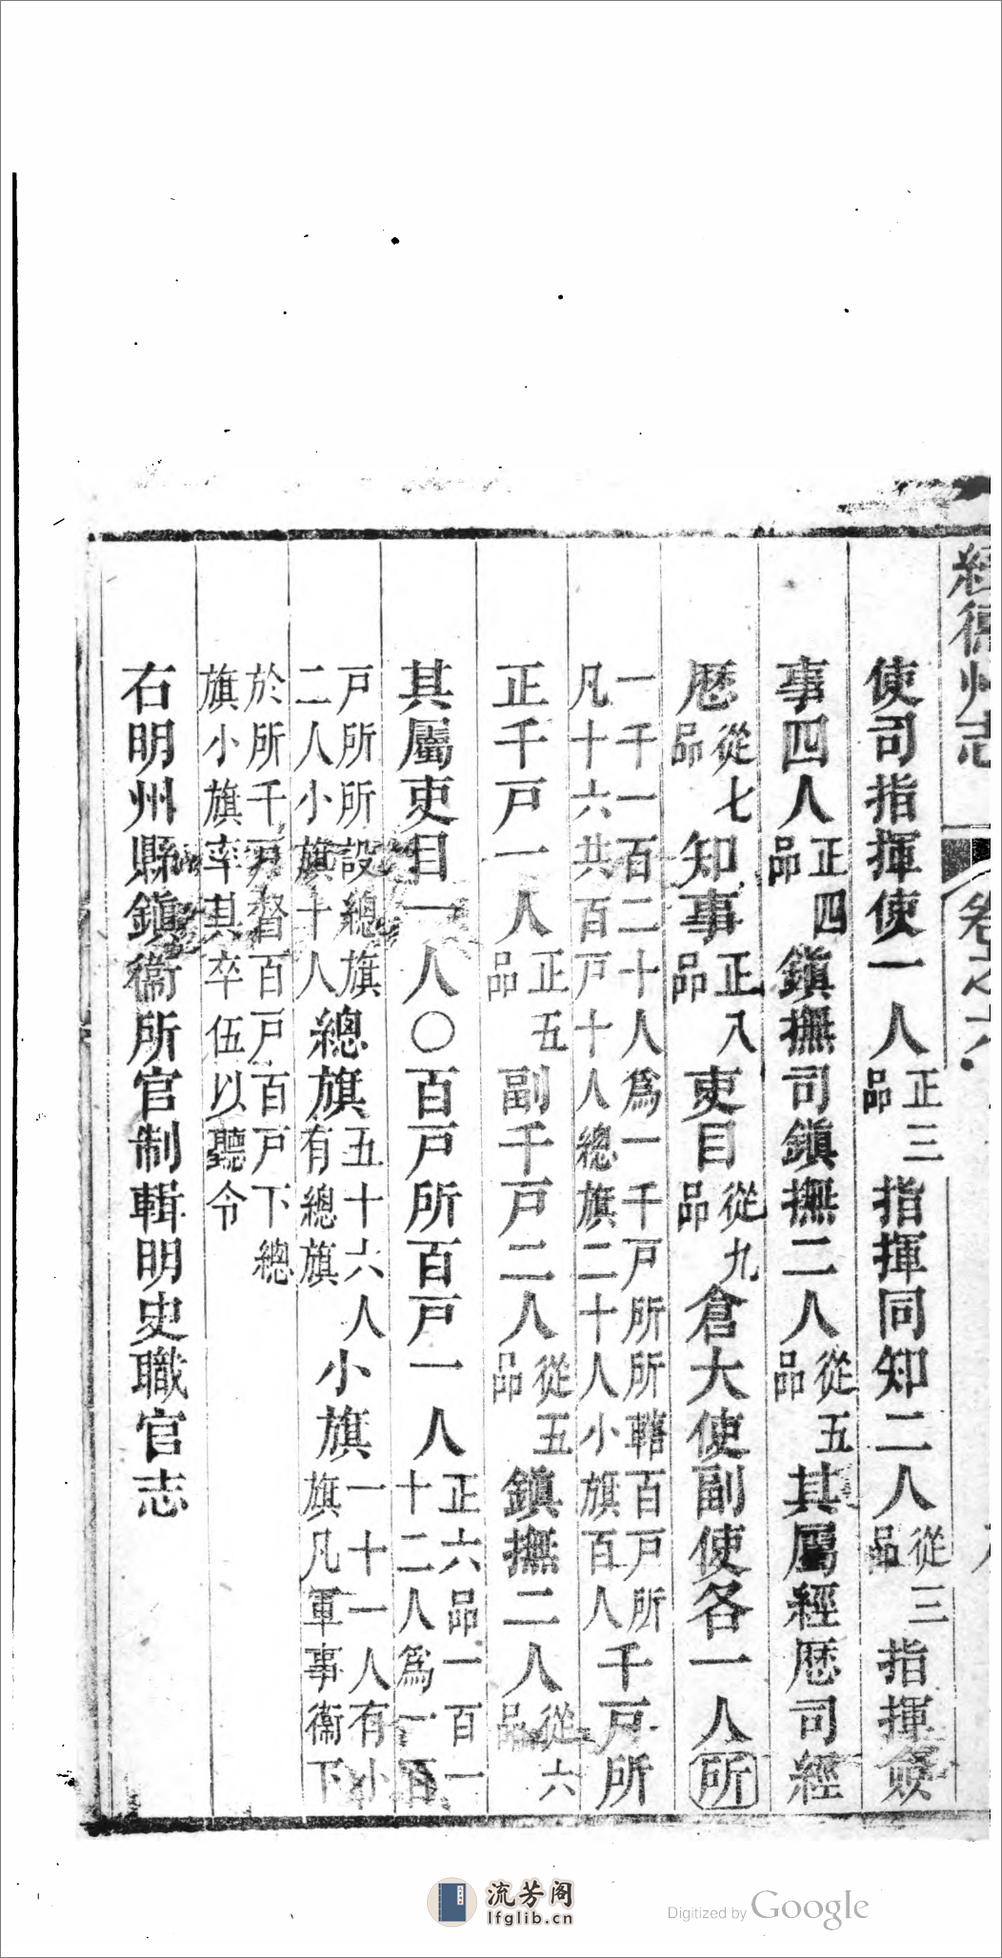 綏德州志 卷之六
使司指揮使一人正三品指揮同知二人從三品指揮僉
事四人正四品鎮撫司鎮撫二人從五品其屬經歷司經
歷從七品知事正八品吏目從九品倉大使副使各一人所
一千一百二十人爲一千戸所所轄百戸所凡十六共百戸十人總旗二十人小旗百人千戸所
正千戸一人正五品副千戸二人從五品鎮撫二人從六品
其屬吏目一人〇百戸所百戸一人正六品一百一十二人爲一百
戸所所設總旗二人小旗十人總旗五十六人有總旗小旗一十一人有小旗凡軍事衞下
於所千戸督百戸百戸下總旗小旗率其卒伍以聽令
右明州縣鎮衞所官制輯明史職官志
流芳阁
lfglib.cn
Digitized by Google